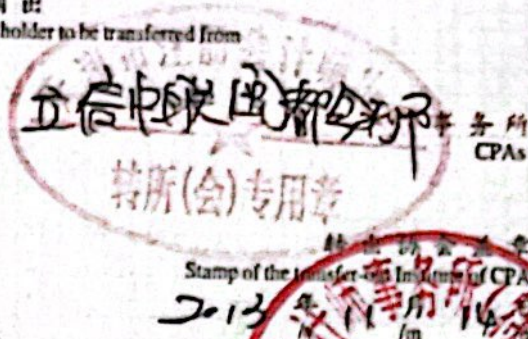 holder to be transferred from
立信中联闽都会计师事务所
CPAs
转所(会)专用章
转出协会盖章
Stamp of the transfer-out Institute of CPA
师事务所
2013年11月14日
/y /m